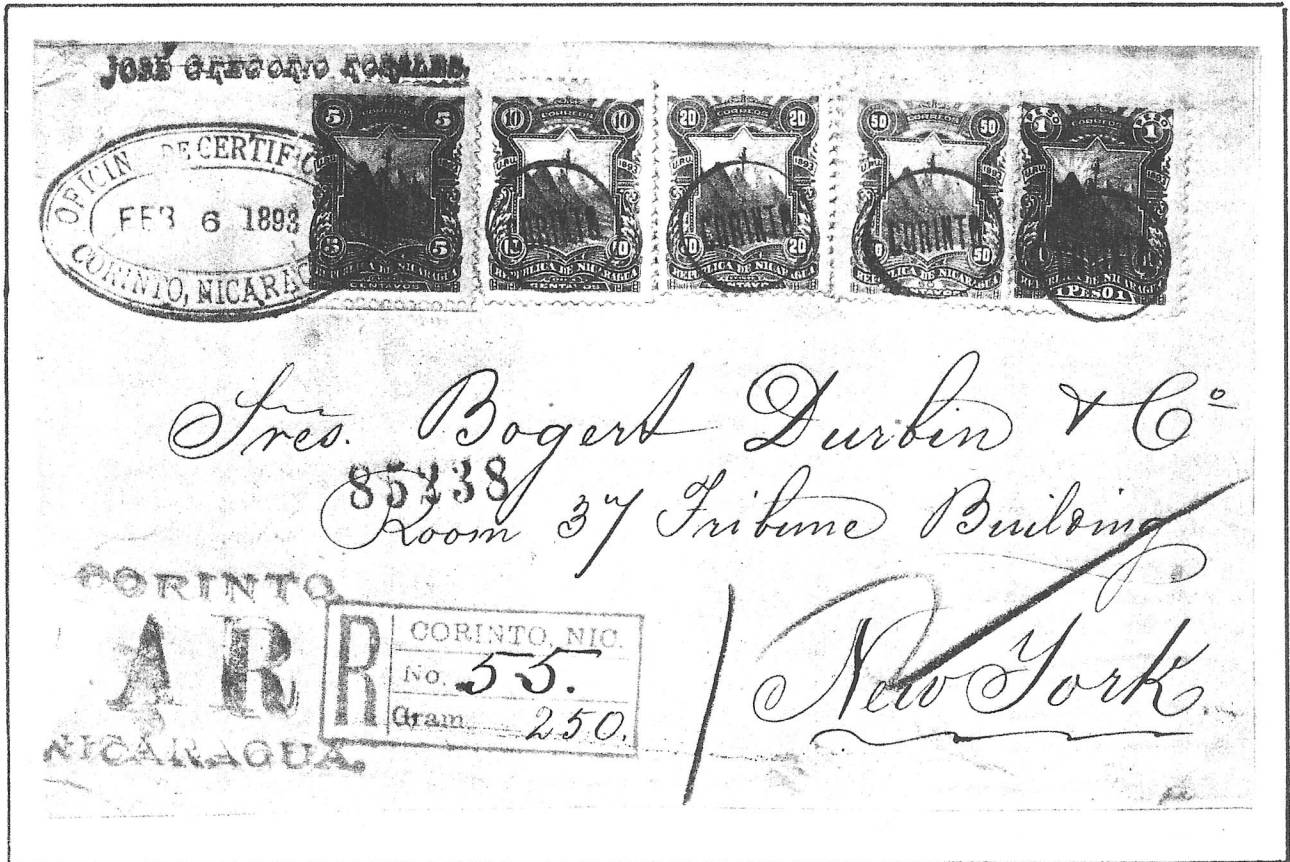 JOSE GREGORIO ROSALES.
OFICIN DE CERTIFIC
FEB 6 1893
CORINTO, NICARAG
5 CORREOS 5
U.P.U. 1893
5 5
REPUBLICA DE NICARAGUA
CENTAVOS
10 CORREOS 10
U.P.U. 1893
CORINTO
10 10
REPUBLICA DE NICARAGUA
CENTAVOS
20 CORREOS 20
U.P.U. 1893
CORINTO
20 20
REPUBLICA DE NICARAGUA
CENTAVOS
50 CORREOS 50
U.P.U. 1893
CORINTO
50 50
REPUBLICA DE NICARAGUA
CENTAVOS
PESO 1 CORREOS PESO 1
U.P.U. 1893
1 1
REPUBLICA DE NICARAGUA
1 PESO 1
Sres. Bogert Durbin & Cº
85338
Room 37 Tribune Building
New York
CORINTO
A R
NICARAGUA.
R
CORINTO, NIC.
No. 55.
Gram 250.